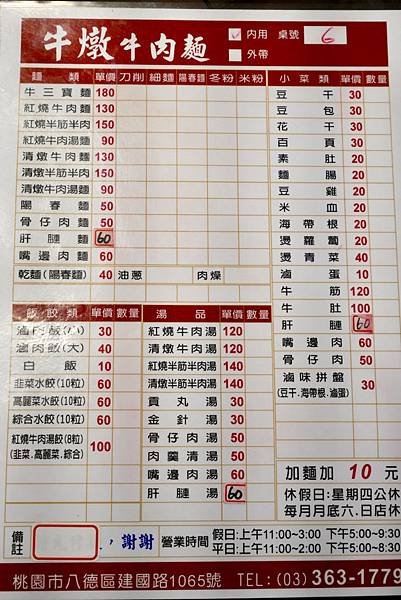 牛燉牛肉麵
✓ 內用 桌號 6
外帶
麵類 單價 刀削 細麵 陽春麵 冬粉 米粉
牛三寶麵 180
紅燒牛肉麵 130
紅燒半筋半肉 150
紅燒牛肉湯麵 90
清燉牛肉麵 130
清燉半筋半肉 150
清燉牛肉湯麵 90
陽春麵 50
骨仔肉麵 50
肝膁麵 60
嘴邊肉麵 60
乾麵(陽春麵) 40 油蔥 肉燥
小菜類 單價 數量
豆干 30
豆包 30
花干 30
百頁 30
素肚 20
麵腸 20
豆雞 20
米血 20
海帶根 20
燙蘿蔔 20
燙青菜 40
滷蛋 10
牛筋 120
牛肚 100
肝膁 60
嘴邊肉 60
骨仔肉 50
滷味拼盤 30
(豆干.海帶根.滷蛋)
飯餃類 單價 數量
滷肉飯(小) 30
滷肉飯(大) 40
白飯 10
韭菜水餃(10粒) 60
高麗菜水餃(10粒) 60
綜合水餃(10粒) 60
紅燒牛肉湯餃(8粒) 100
(韭菜.高麗菜.綜合)
湯品 單價 數量
紅燒牛肉湯 120
清燉牛肉湯 120
紅燒半筋半肉湯 140
清燉半筋半肉湯 140
貢丸湯 30
金針湯 30
骨仔肉湯 50
肉羹清湯 50
嘴邊肉湯 60
肝膁湯 60
加麵加 10 元
休假日:星期四公休
每月月底六.日店休
備註 ，謝謝
營業時間 假日:上午11:00~3:00 下午5:00~9:30
平日:上午11:00~2:00 下午5:00~8:30
桃園市八德區建國路1065號 TEL:(03) 363-1779